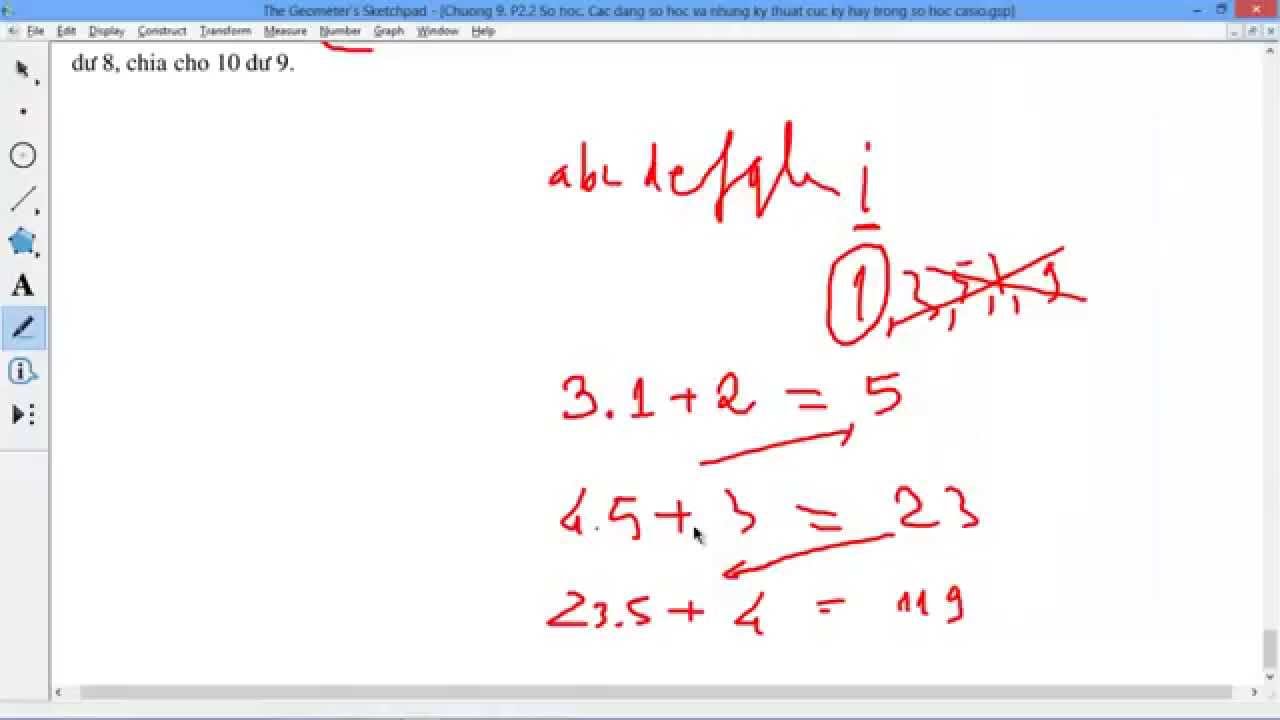 The Geometer's Sketchpad - [Chuong 9. P2.2 So hoc. Cac dang so hoc va nhung ky thuat cuc ky hay trong so hoc casio.gsp]
File Edit Display Construct Transform Measure Number Graph Window Help
dư 8, chia cho 10 dư 9.
abc defgh i
1, 3, 5, 7, 9
3.1 + 2 = 5
4.5 + 3 = 23
23.5 + 4 = 119
A